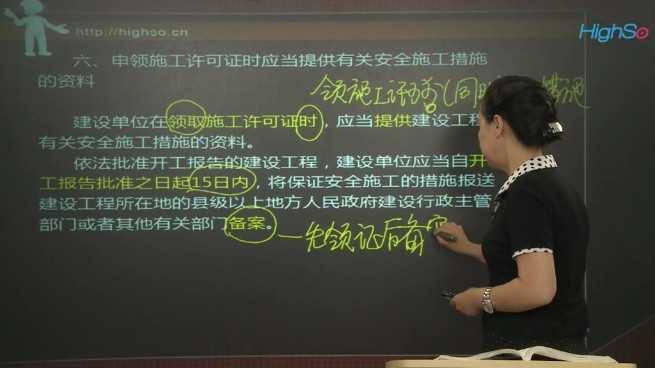 http://highso.cn
HighSo
六、申领施工许可证时应当提供有关安全施工措施
的资料
领施工许可证(同时 措施
建设单位在领取施工许可证时,应当提供建设工程
有关安全施工措施的资料。
依法批准开工报告的建设工程,建设单位应当自开
工报告批准之日起15日内,将保证安全施工的措施报送
建设工程所在地的县级以上地方人民政府建设行政主管
部门或者其他有关部门备案。
—先领证后备案